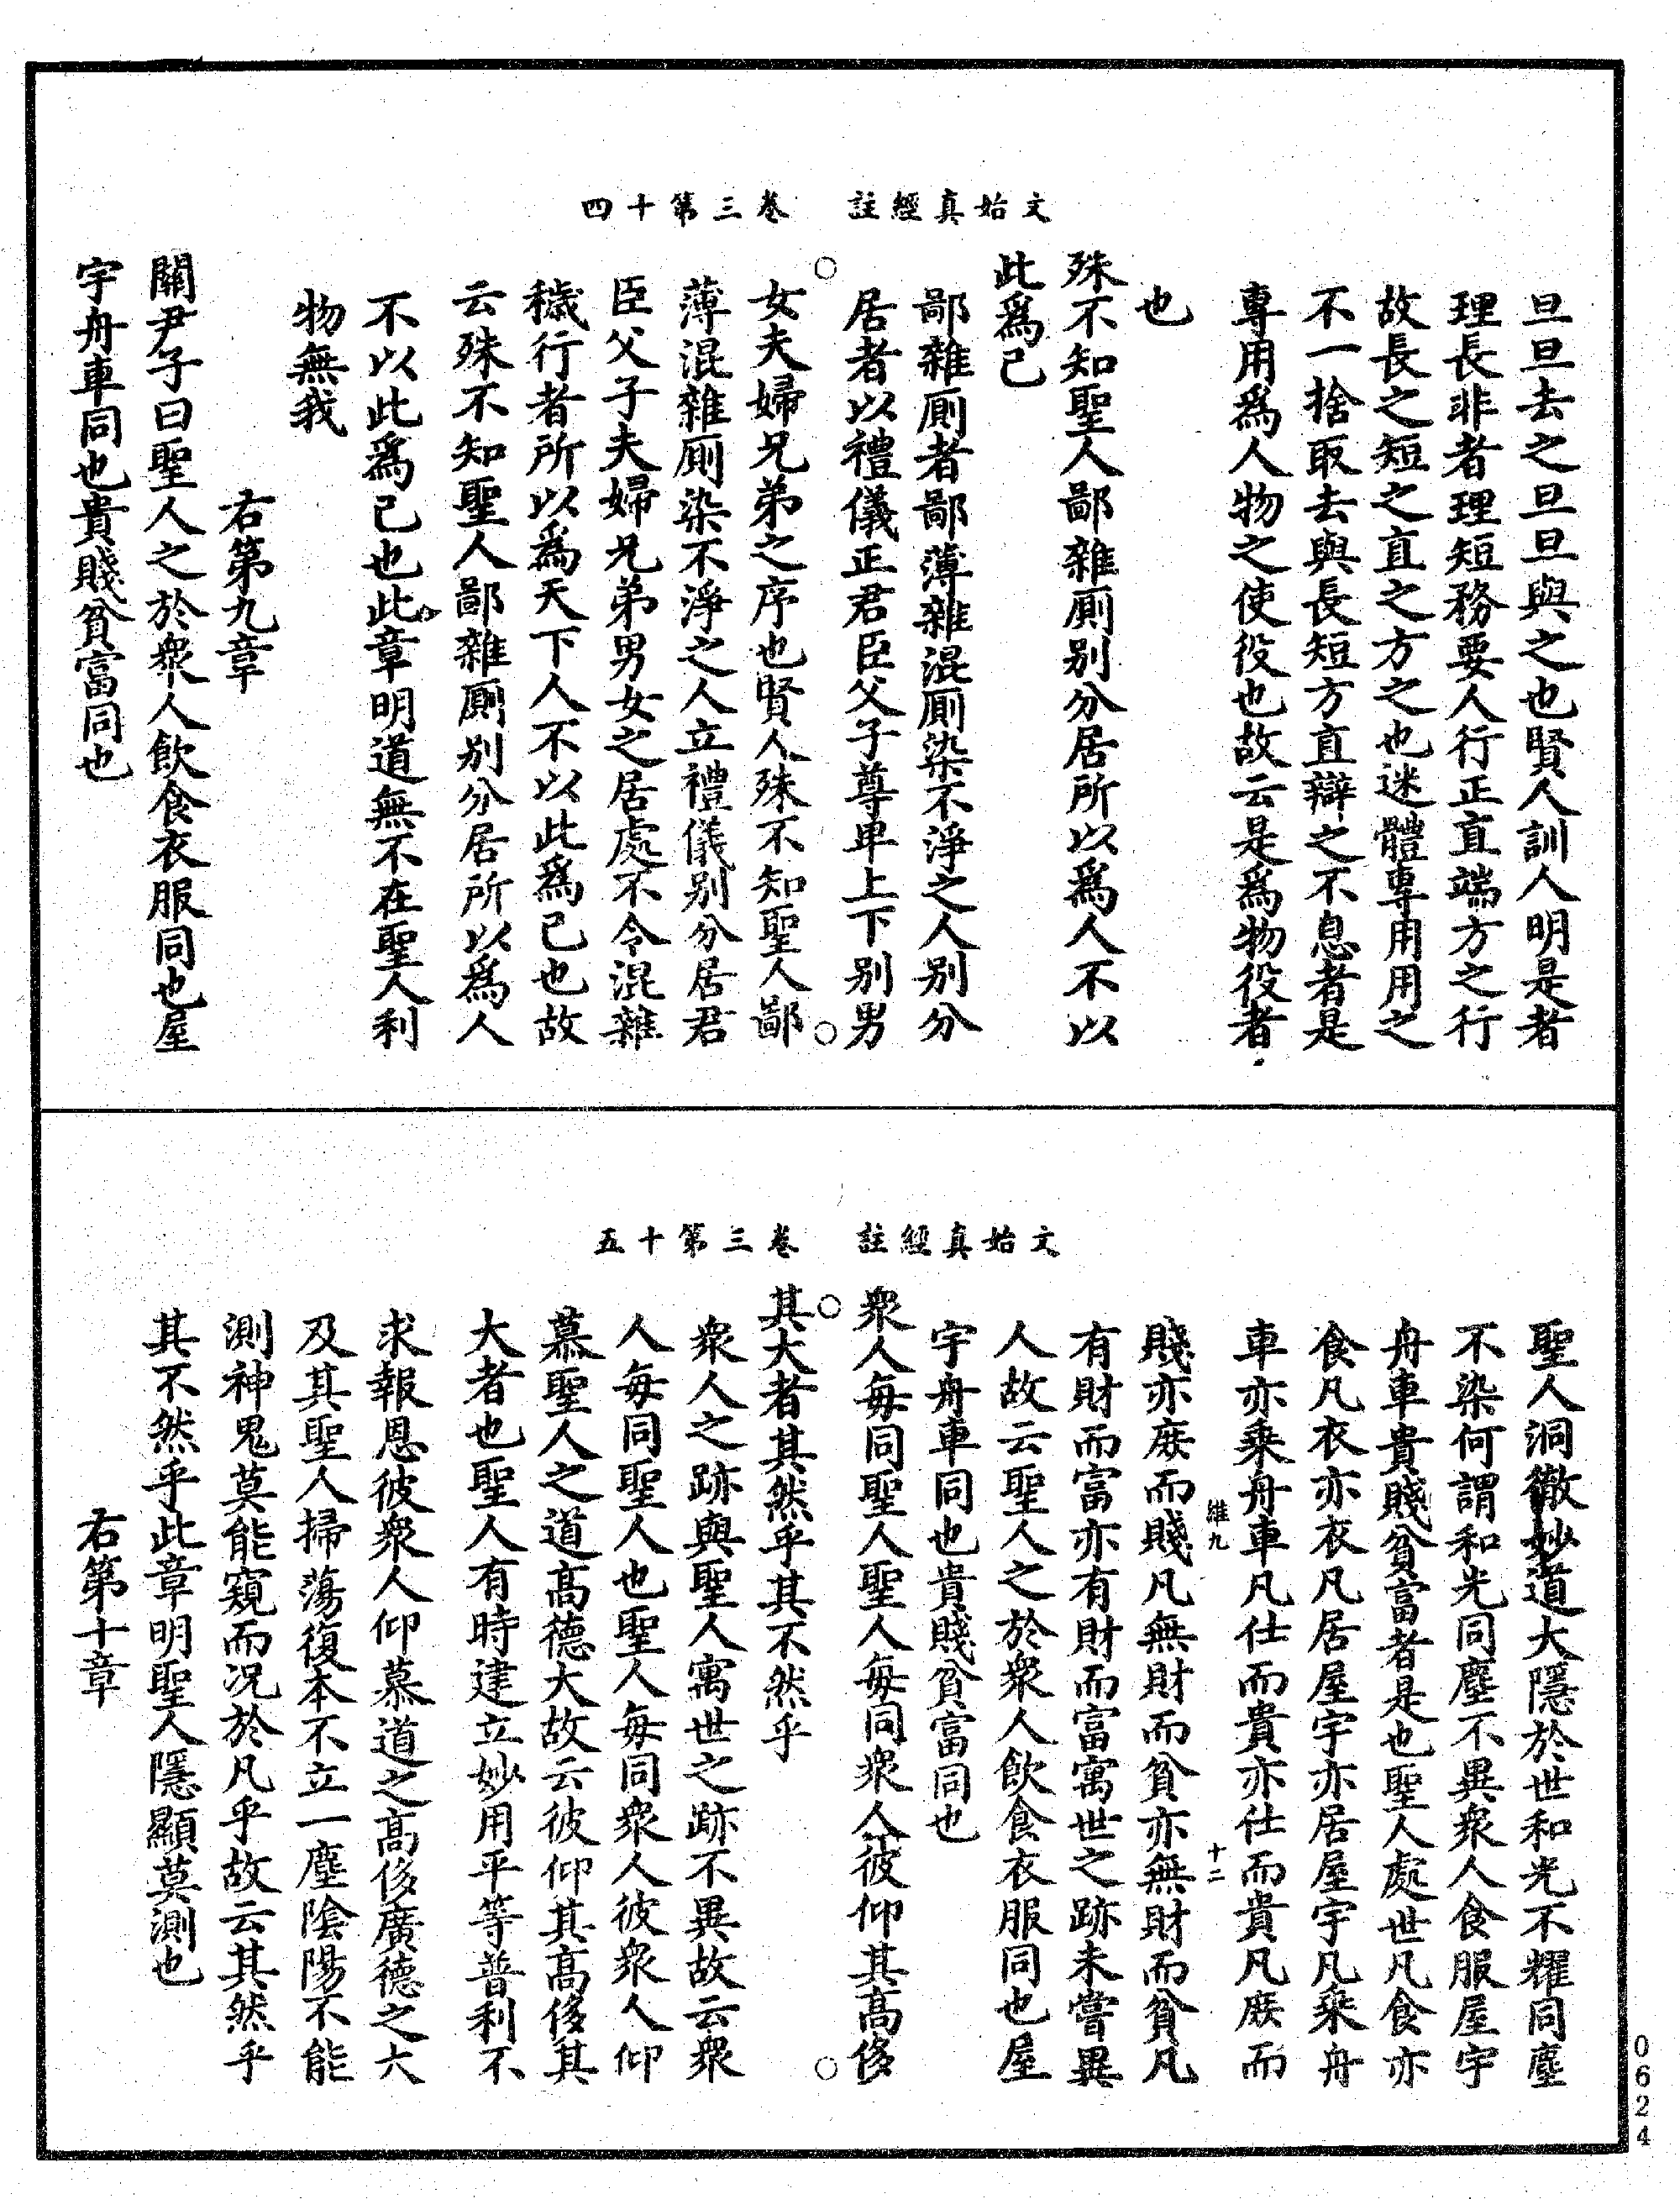 文始真經註　卷三第十四
旦旦去之旦旦與之也賢人訓人明是者
理長非者理短務要人行正直端方之行
故長之短之直之方之也迷體專用用之
不一捨取去與長短方直辯之不息者是
專用為人物之使役也故云是為物役者
也
殊不知聖人鄙雜厠别分居所以為人不以
此為己
鄙雜厠者鄙薄雜混厠染不淨之人别分
居者以禮儀正君臣父子尊卑上下别男
女夫婦兄弟之序也賢人殊不知聖人鄙
薄混雜厠染不淨之人立禮儀别分居君
臣父子夫婦兄弟男女之居處不令混雜
穢行者所以為天下人不以此為己也故
云殊不知聖人鄙雜厠别分居所以為人
不以此為己也此章明道無不在聖人利
物無我
右第九章
關尹子曰聖人之於衆人飲食衣服同也屋
宇舟車同也貴賤貧富同也
文始真經註　卷三第十五
聖人洞徹妙道大隱於世和光不耀同塵
不染何謂和光同塵不異衆人食服屋宇
舟車貴賤貧富者是也聖人處世凡食亦
食凡衣亦衣凡居屋宇亦居屋宇凡乘舟
車亦乘舟車凡仕而貴亦仕而貴凡庶而
維九　十二
賤亦庶而賤凡無財而貧亦無財而貧凡
有財而富亦有財而富寓世之跡未嘗異
人故云聖人之於衆人飲食衣服同也屋
宇舟車同也貴賤貧富同也
衆人每同聖人聖人每同衆人彼仰其高侈
其大者其然乎其不然乎
衆人之跡與聖人寓世之跡不異故云衆
人每同聖人也聖人每同衆人彼衆人仰
慕聖人之道高德大故云彼仰其高侈其
大者也聖人有時建立妙用平等普利不
求報恩彼衆人仰慕道之高侈廣德之大
及其聖人掃蕩復本不立一塵陰陽不能
測神鬼莫能窺而况於凡乎故云其然乎
其不然乎此章明聖人隱顯莫測也
右第十章
0624